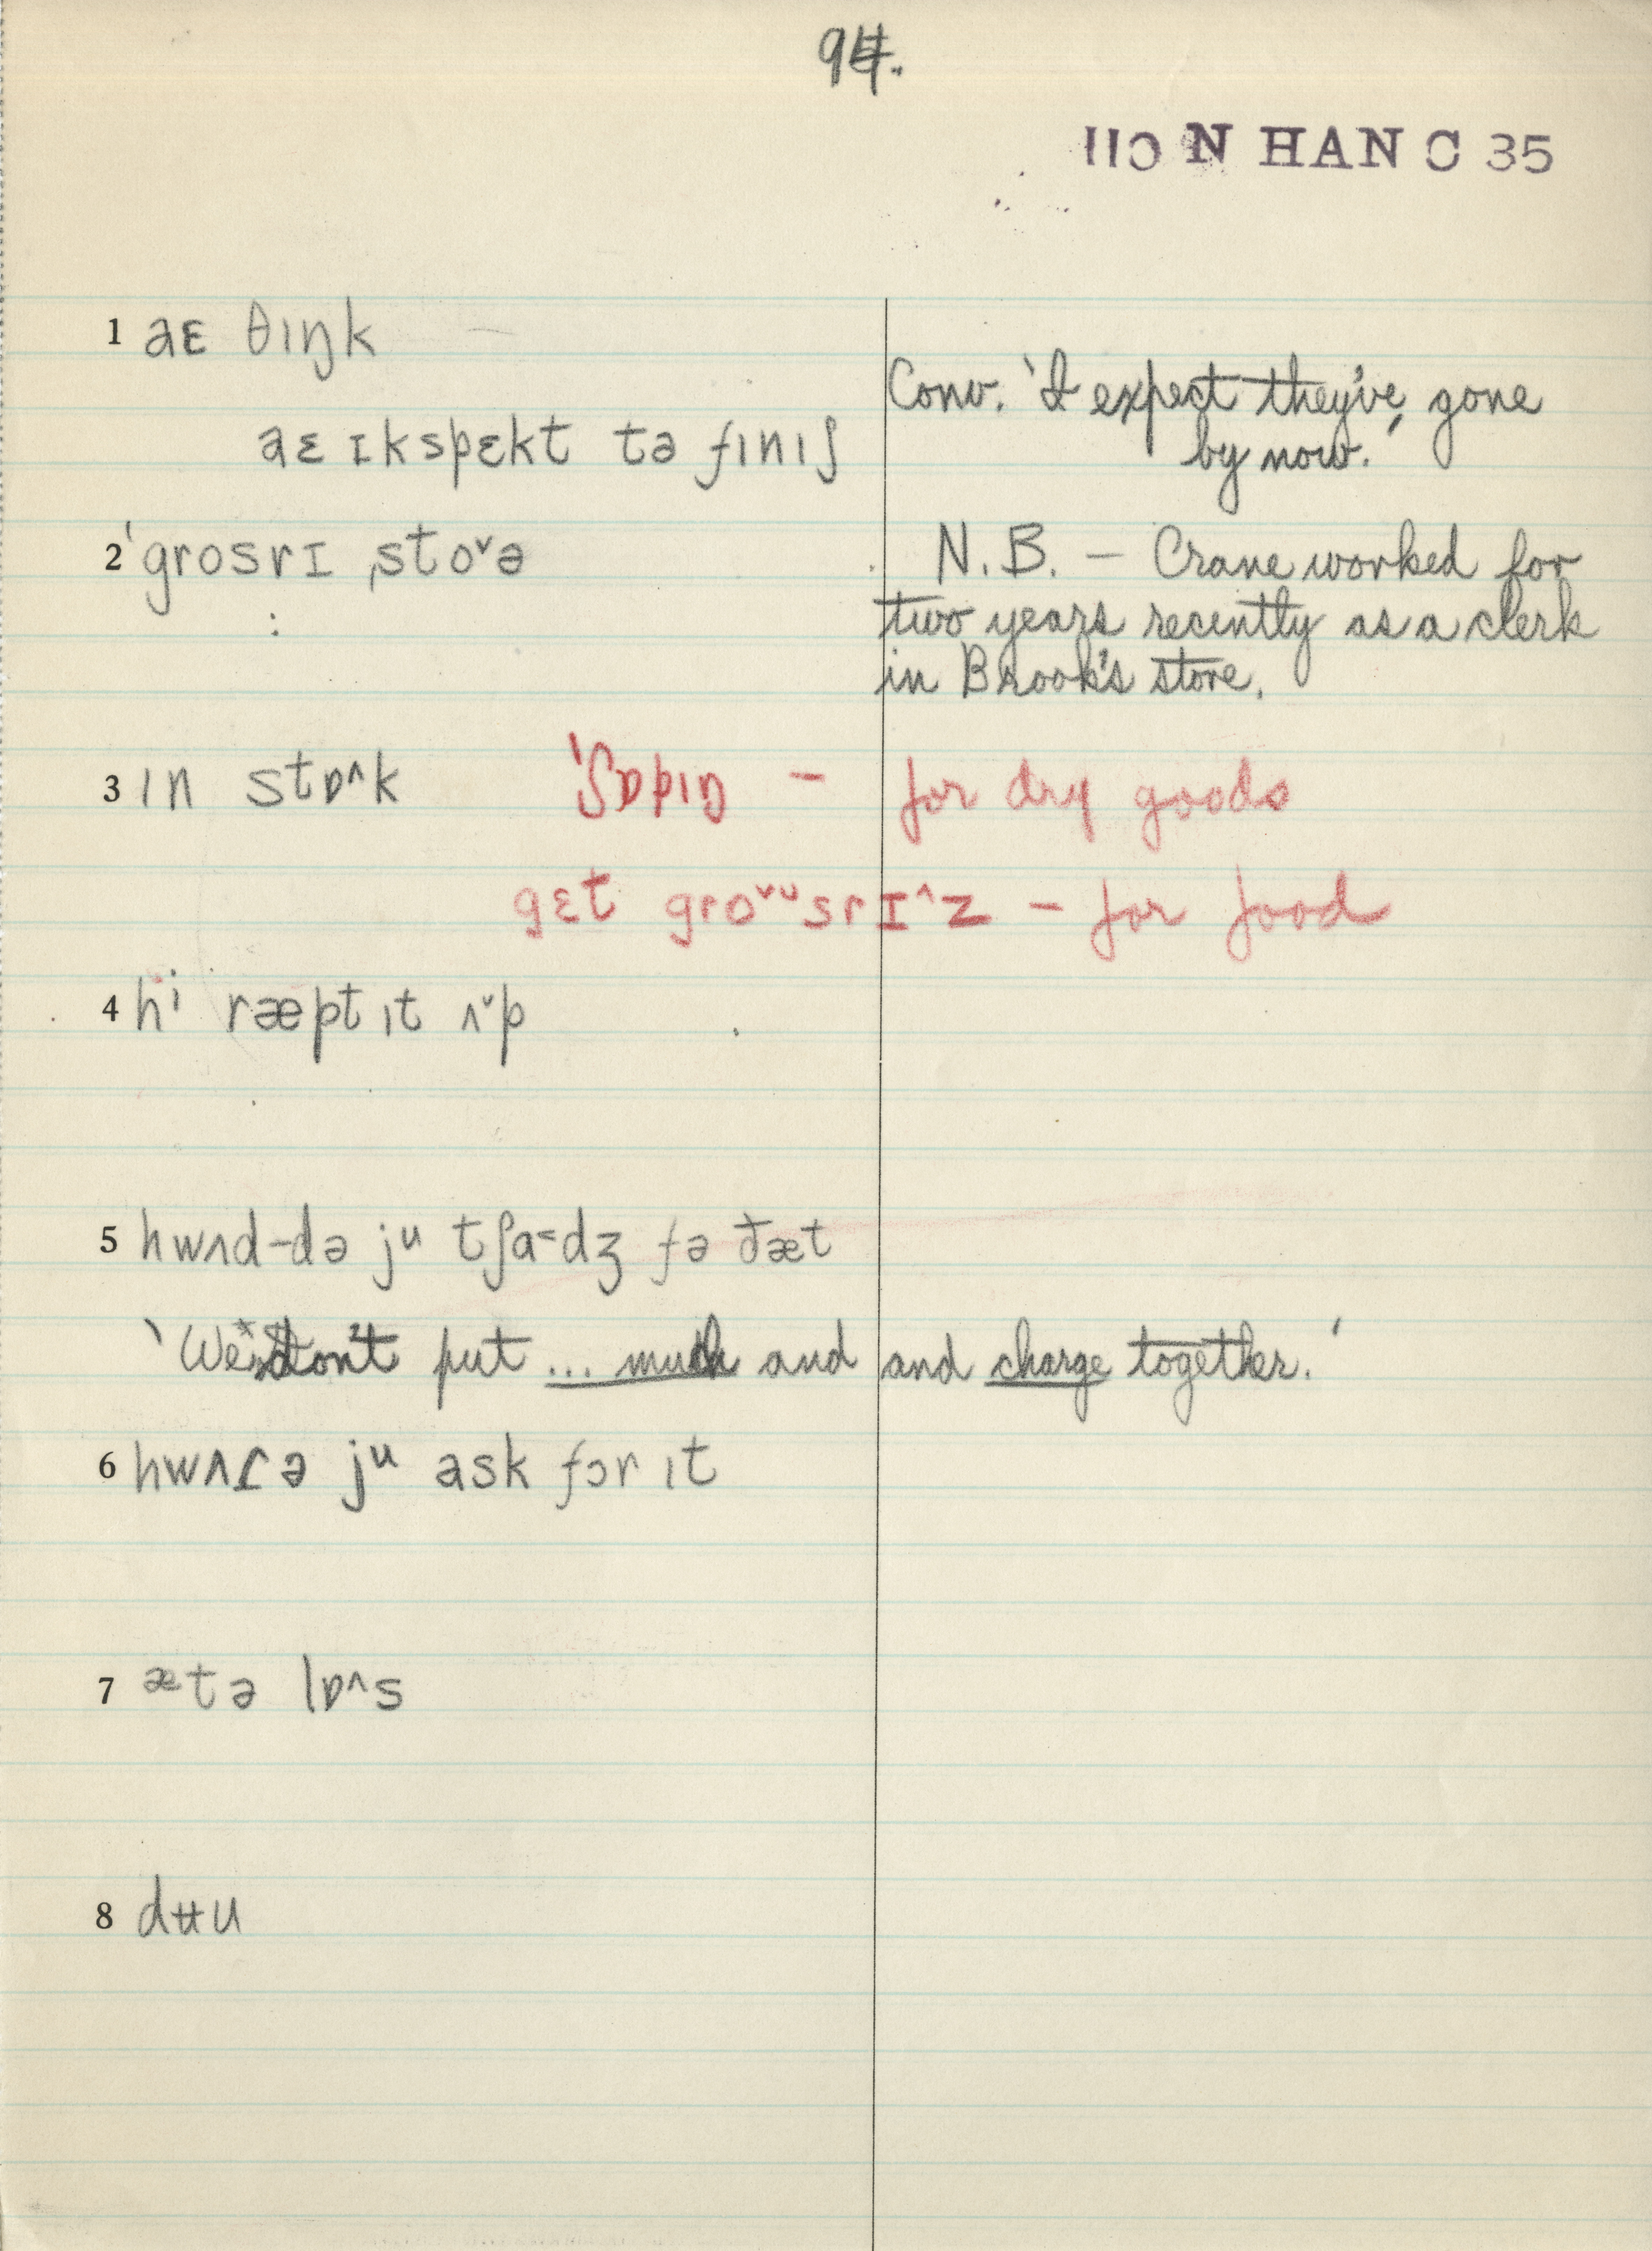 94.
110 N HAN C 35
1 aɛ θɪŋk
Conv. 'I expect they've gone
aɛ ɪkspɛkt tə fɪnɪʃ
by now.'
2 ˈgrosrɪ ˌstoˇə
N.B. – Crane worked for
two years recently as a clerk
in Brook's store.
3 ɪn stɒ^k ˈʃɒpɪŋ – for dry goods
gɛt groˇᵘsrɪ^z – for food
4 hⁱ ræpt ɪt ʌˇp
5 hwʌd-də jᵘ tʃa˂dʒ fə ðæt
'We don't put ... much and and charge together.'
6 hwʌɾə jᵘ ask fɔr ɪt
7 ætə lɒ^s
8 dʉu